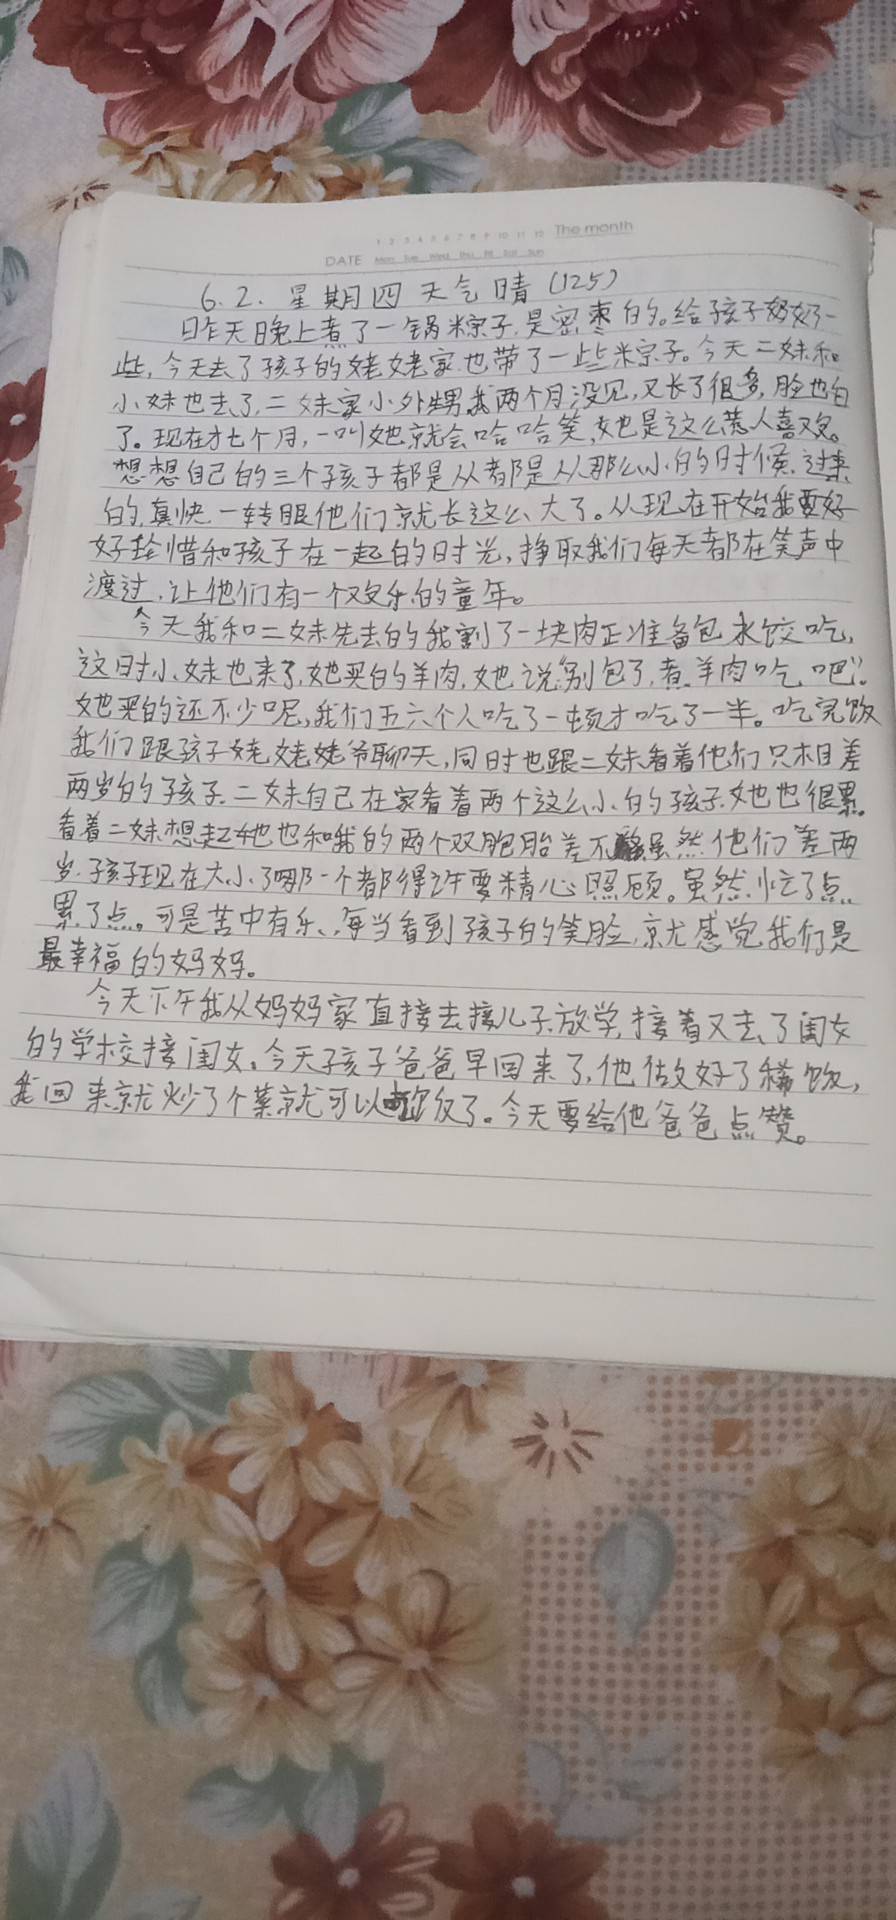 1 2 3 4 5 6 7 8 9 10 11 12 The month
DATE Mon Tue Wed Thu Fri Sat Sun
6.2. 星期四 天气晴 (125)
昨天晚上煮了一锅粽子.是密枣的。给孩子奶奶一
些,今天去了孩子的姥姥家.也带了一些粽子。今天二妹和
小妹也去了,二妹家小外甥我两个月没见,又长了很多,脸也白
了。现在才七个月,一叫她就会哈哈笑,她是这么惹人喜欢。
想想自己的三个孩子都是从都是从那么小的时候.过来
的,真快.一转眼他们就长这么大了。从现在开始我要好
好珍惜和孩子在一起的时光,挣取我们每天都在笑声中
渡过,让他们有一个欢乐的童年。
今天我和二妹先去的我割了一块肉正准备包水饺吃,
这时小妹也来了,她买的羊肉,她说"别包了,煮羊肉吃吧"。
她买的还不少呢,我们五六个人吃了一顿才吃了一半。吃完饭
我们跟孩子姥姥姥爷聊天,同时也跟二妹看着他们只相差
两岁的孩子.二妹自己在家看着两个这么小的孩子.她也很累。
看着二妹想起她也和我的两个双胞胎差不虽然他们差两
岁.孩子现在大小了哪一个都得许要精心照顾。虽然忙了点
累了点。可是苦中有乐,每当看到孩子的笑脸,就感觉我们是
最幸福的妈妈。
今天下午我从妈妈家直接去接儿子放学,接着又去了闺女
的学校接闺女。今天孩子爸爸早回来了,他做好了稀饭,
我回来就炒了个菜就可以吃饭了。今天要给他爸爸点赞。